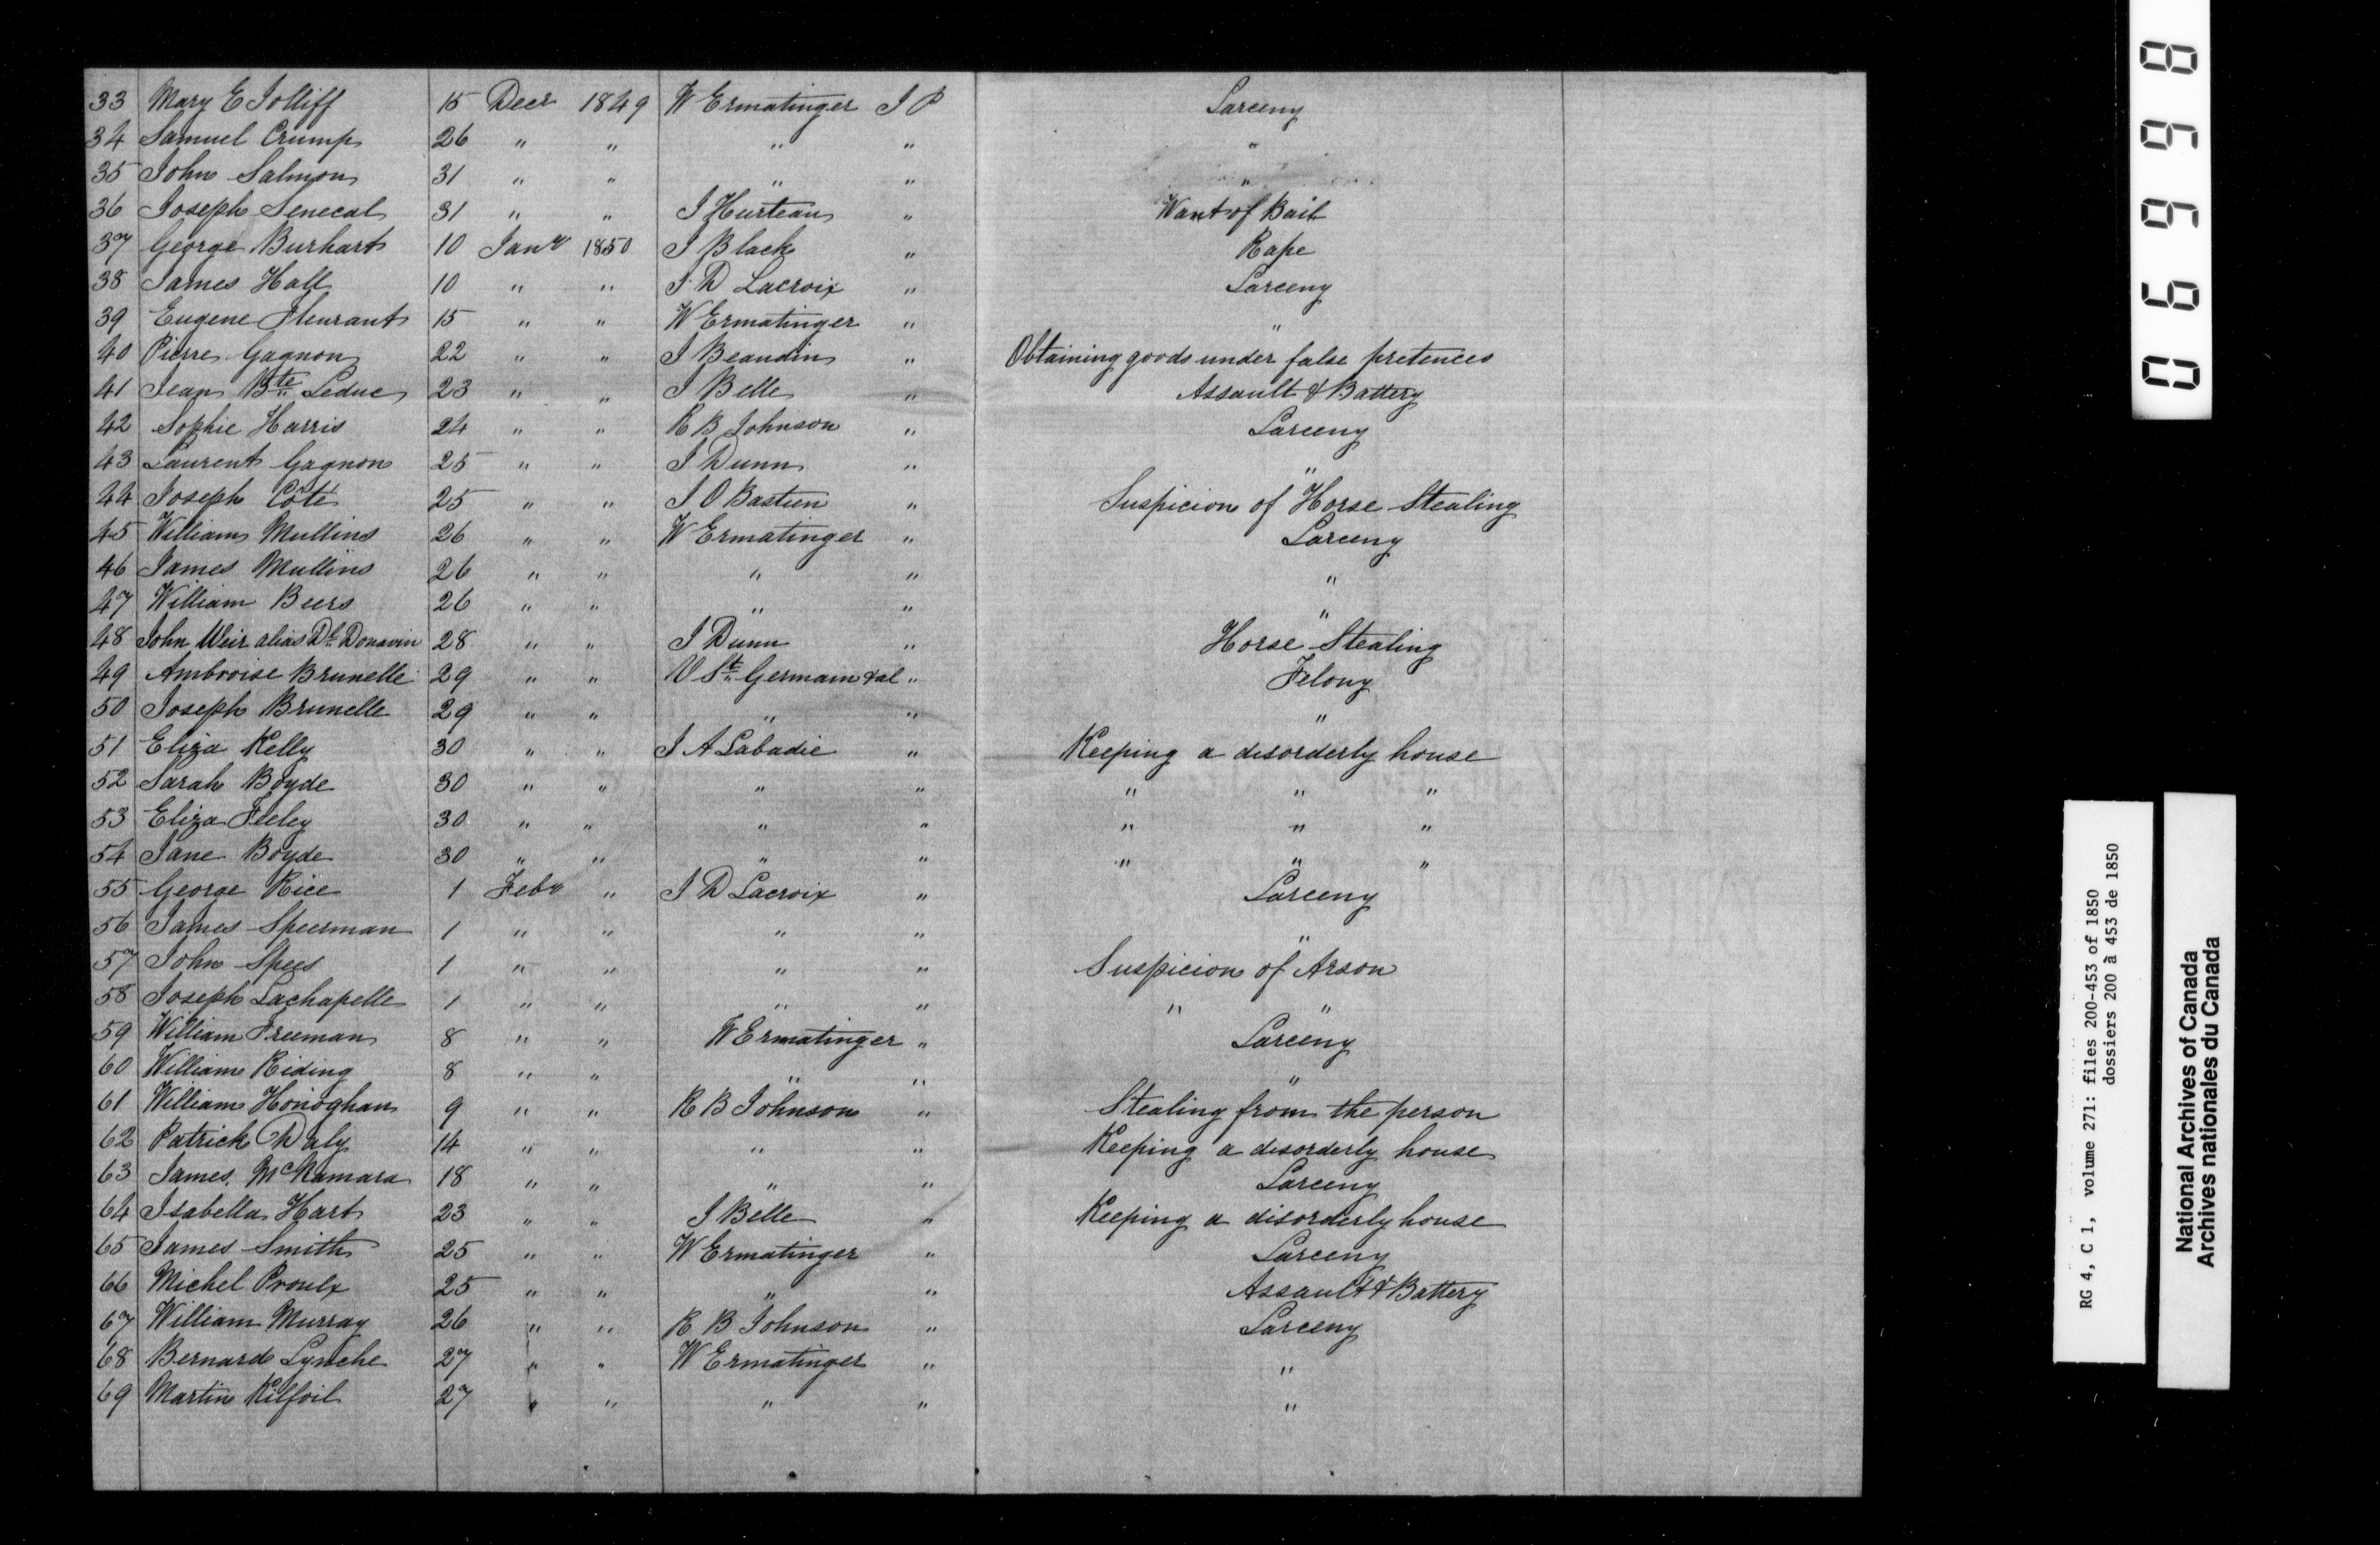 33 Mary E Jolliff 15 Decr 1849 W Ermatinger J P Larceny
34 Samuel Crump 26 " " " " "
35 John Salmon 31 " " " " "
36 Joseph Senecal 31 " " J Hurteau " Want of Bail
37 George Burhart 10 Jany 1850 J Black " Rape
38 James Hall 10 " " J D Lacroix " Larceny
39 Eugene Fleurant 15 " " W Ermatinger " "
40 Pierre Gagnon 22 " " J Beaudin " Obtaining goods under false pretences
41 Jean Bte Leduc 23 " " J Belle " Assault & Battery
42 Sophie Harris 24 " " R B Johnson " Larceny
43 Laurent Gagnon 25 " " J Dunn " "
44 Joseph Côté 25 " " J O Bastien " Suspicion of Horse Stealing
45 William Mullins 26 " " W Ermatinger " Larceny
46 James Mullins 26 " " " " "
47 William Beers 26 " " " " "
48 John Weir alias Dl Donavin 28 " " J Dunn " Horse Stealing
49 Ambroise Brunelle 29 " " V St Germain & al " Felony
50 Joseph Brunelle 29 " " " " "
51 Eliza Kelly 30 " " J A Labadie " Keeping a disorderly house
52 Sarah Boyde 30 " " " " " " "
53 Eliza Feeley 30 " " " " " " "
54 Jane Boyde 30 " " " " " " "
55 George Rice 1 Feby " J D Lacroix " Larceny
56 James Speerman 1 " " " " "
57 John Spees 1 " " " " Suspicion of Arson
58 Joseph Lachapelle 1 " " " " " "
59 William Freeman 8 " " W Ermatinger " Larceny
60 William Riding 8 " " " " "
61 William Honoghan 9 " " R B Johnson " Stealing from the person
62 Patrick Daly 14 " " " " Keeping a disorderly house
63 James McNamara 18 " " " " Larceny
64 Isabella Hart 23 " " J Belle " Keeping a disorderly house
65 James Smith 25 " " W Ermatinger " Larceny
66 Michel Proulx 25 " " " " Assault & Battery
67 William Murray 26 " " R B Johnson " Larceny
68 Bernard Lynche 27 " " W Ermatinger " "
69 Martin Kilfoil 27 " " " " "
069998
RG 4, C 1, volume 271: files 200-453 of 1850
dossiers 200 à 453 de 1850
National Archives of Canada
Archives nationales du Canada